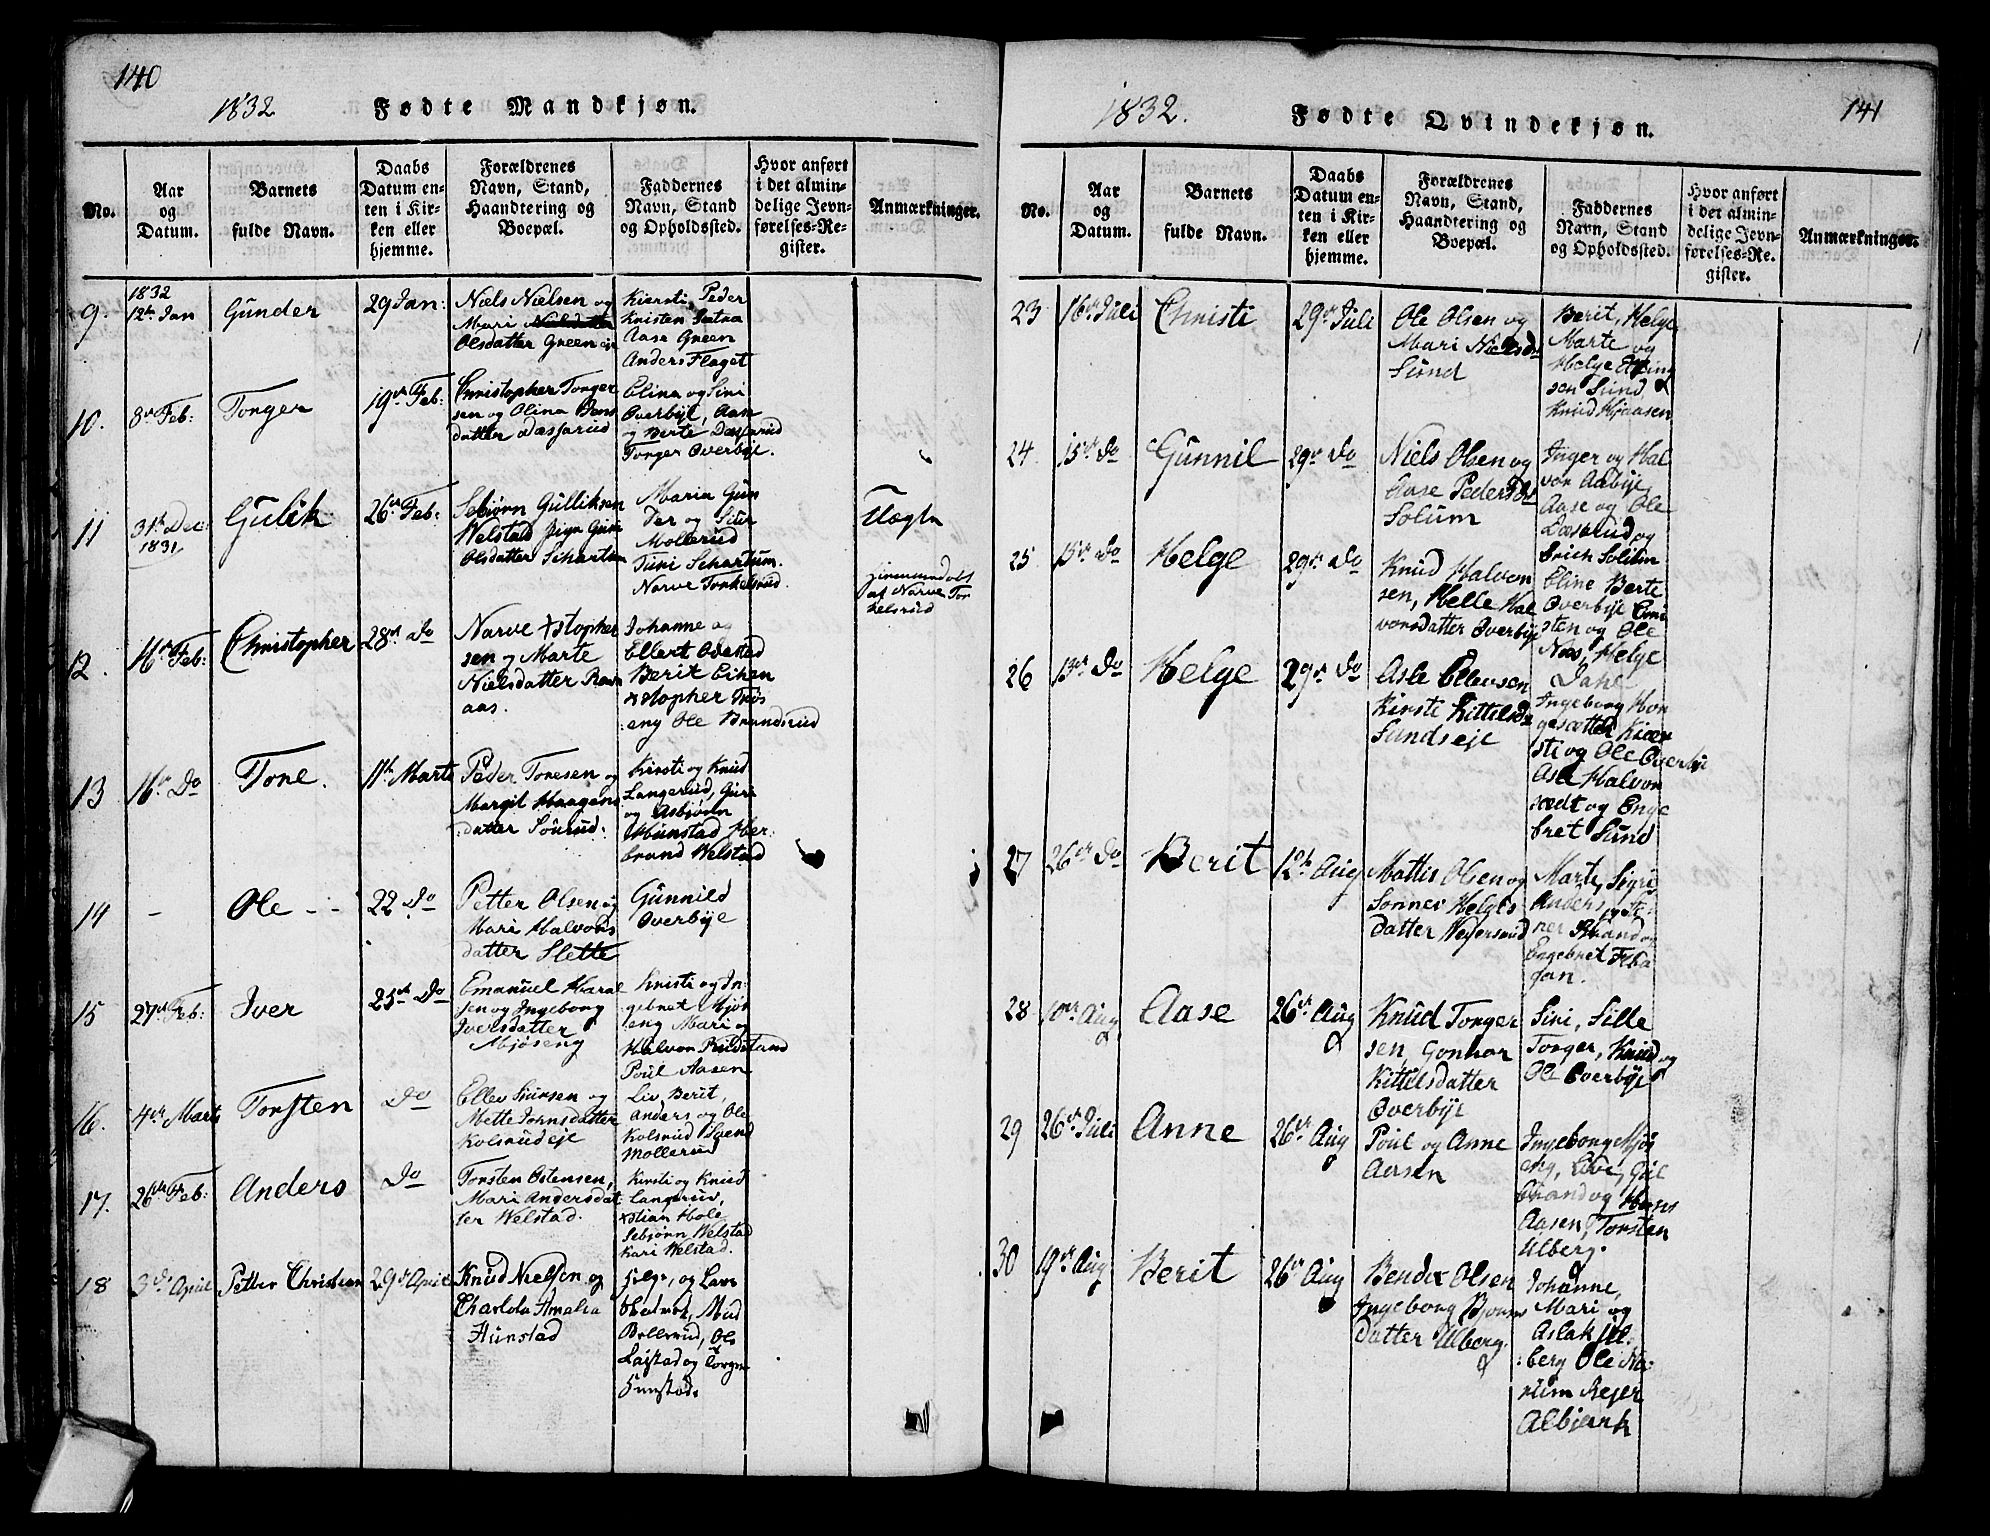 140
1832 Fødte Mandkjøn.
No.
Aar
og
Datum.
Barnets
fulde Navn.
Daabs
Datum en-
ten i Kir-
ken eller
hjemme.
Forældrenes
Navn, Stand,
Haandtering og
Boepæl.
Faddernes
Navn, Stand
og Opholdssted.
Hvor anført
i det almin-
delige Jevn-
førelses-Re-
gister.
Anmærkninger.
9.
1832
12te Jan
Gunder
29 Jan:
Niels Nielsen og
Mari Nielsdatter
Olsdatter Green eje
Kiersti Peder
Kristen
Aase Green
Anders Flaget
10.
8de Feb:
Torger
19de Feb:
Christopher Torger
sen og Olina Jens
datter Dæsserud
Elina og Siri
Overbye, Aase
og Berte Dæsserud
Torger Overbye.
11
31te Dec:
1831
Gulik
26de Feb:
Sebjørn Gulliksen
Welstad Pige Guri
Olsdatter Schartum
Maria Gun
der og Siur
Mollerud
Turi Schartum.
Narve Torkelsrud
Uægte
af Narve Tor
kelsrud
12.
16de Feb:
Christopher
28de Do
Narve Xstopher
sen og Marte
Nielsdatter Ravn
aas.
Johanne og
Ellert Odestad
Berit Eiken
Xstopher Trøs
eng Ole Brandsrud
13
16de Do
Tore.
11te Marts
Peder Toresen og
Margit Haagens
datter Sørrud:
Kirsti og Knud
Langerud, Guri
og Asbjørn
Hunstad Her:
brand Welstad
14
-
Ole - -
22 Do
Petter Olsen og
Mari Halvors
datter Slette
Gunnild
Overbye
15
27de Feb:
Iver
25de Do
Emanuel Haral
sen og Ingeborg
Iversdatter
Mjøseng
Kristi og In:
gebret Mjøs
eng Mari og
Halvor Rudstand
Poul Aasen
16.
4de Marts
Torsten
Do
Ellev Siursen og
Mette Johnsdatter
Kolsrudeje
Liv Berit,
Anders og Ole
Kolsrud Svend
Mollerud
17.
26de Feb:
Anders
Do
Torsten Ostensen,
Mari Andersdat
ter Welstad.
Kirsti og Knud
Langerud,
Xstian Hole
Sebjørn Welstad
Kari Welstad.
18
3de April
Petter Christian
29de April
Knud Nielsen og
Charlota Amalia
Hunstad
Helge, og Lars
Bollerud, Ole
Lajstad og Torger
Hunstad.
1832. Fødte Qvindekjøn.
141
No.
Aar
og
Datum.
Barnets
fulde Navn.
Daabs
Datum en-
ten i Kir-
ken eller
hjemme.
Forældrenes
Navn, Stand,
Haandtering og
Boepæl.
Faddernes
Navn, Stand
og Opholdssted.
Hvor anført
i det almin-
delige Jevn-
førelses-Re-
gister.
Anmærkninger.
23
16de Juli
Christi
29de Juli
Ole Olsen og
Mari Nielsdr
Sund
Berit, Helge
Marte og
Helge Elling
sen Sund
Knud Hjaasen
24
15de Do
Gunnil
29de Do
Niels Olsen og
Aase Pedersdr
Solum
Inger og Hal
vor Aabye,
Aase og Ole
Dæsserud og
Erich Solum
25
15de Do
Helge
29de Do
Knud Halvor
sen, Helle Hal
vorsdatter Overbye
Eline Berte
Overbye Cni
sten og Ole
Næs, Helge
Dahl
26
13de Do
Helge
29de Do
Asle Clausen
Kirsti Kittelsdr
Sundseje
Ingeborg Hor
gesætter Kier
sti og Ole Overbye
Asle Halvor
rødt og Enge
bret Sund
27
26de Do
Berit
12te Aug
Mattis Olsen og
Sønnev Helges
datter Nejersrud
Marte, Sigri
Anders, og Ste:
ner Strand og
Engebret Feka
jan.
28
10de Aug
Aase
26de Aug
Knud Torger
sen, Gonhor
Kittelsdatter
Overbye
Siri, Sille
Torger, Knud og
Ole Overbye
29
26de Juli
Anne
26de Aug
Poul og Anne
Aasen
Ingeborg Mjøs
eng, Live, Gul
brand og Hans
Aasen, Torsten
Ulberg.
30
19de Aug
Berit
26de Aug
Bendix Olsen
Ingeborg Bjørns
datter Ulberg.
Johanne,
Mari og
Aslak Ul:
berg Ole Na:
rum Rejer
Albjerk